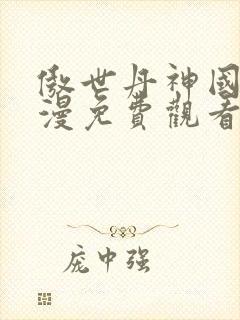 傲世丹神國
漫免費觀看
庞中强